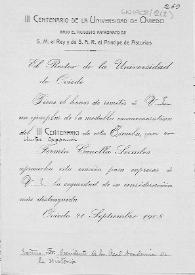 III CENTENARIO DE LA UNIVERSIDAD DE OVIEDO
BAJO EL AUGUSTO PATRONATO DE
S. M. el Rey y de S. A. R. el Príncipe de Asturias
El Rector de la Universidad
de Oviedo
Tiene el honor de remitir á V. I.
un ejemplar de la medalla conmemorativa
del III CENTENARIO de esta Escuela, que
Fermín Canella Secades
aprovecha esta ocasión para expresar á
V. I. la seguridad de su consideración
más distinguida
Oviedo 21 Septiembre 1908
Presidente de la Real Academia de
la Historia